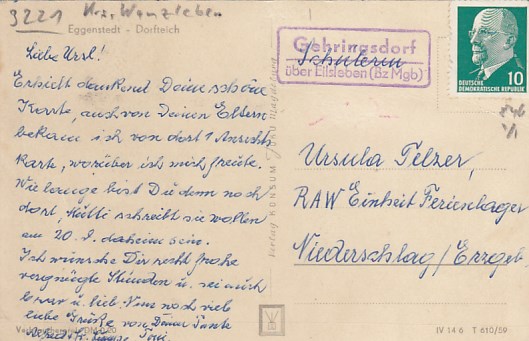 3221 Krs. Wanzleben
Eggenstedt - Dorfteich
Gehringsdorf
über Eilsleben (Bz Mgb)
DEUTSCHE
DEMOKRATISCHE REPUBLIK
10
Liebe Ursel!
Erhielt dankend Deine schöne
Karte, auch von Deinen Eltern
bekam ich von dort 1 Ansichts
karte, worüber ich mich freute.
Wie lange bist Du denn noch
dort, Mutti schreibt sie wollen
am 20. 8. daheim sein.
Ich wünsche Dir recht frohe
vergnügte Stunden u. sei auch
brav u. lieb. Nun noch viel
liebe Grüße von Deine Tante
Verlag KONSUM FOKU Magdeburg
Schülerin
Ursula Pelzer,
RAW Einheit Ferienlager
Niederschlag/Erzgeb
IV 14 6 T 610/59